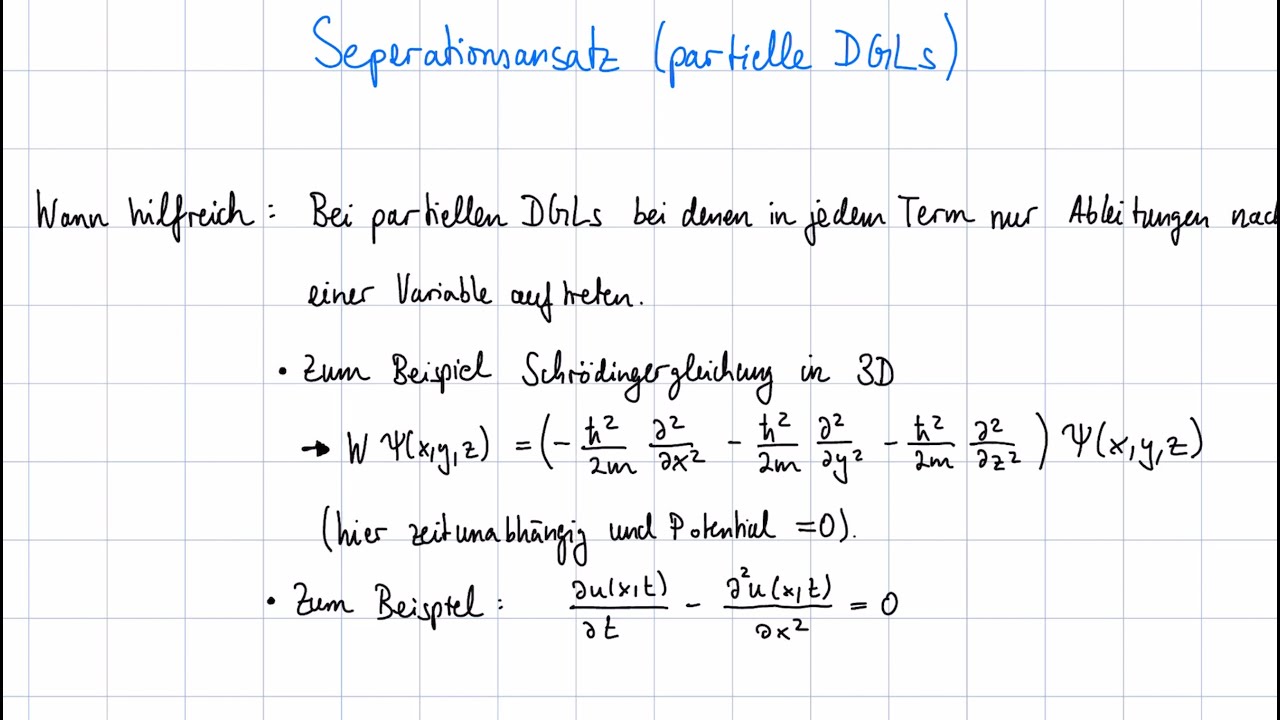 Seperationsansatz (partielle DGLs)
Wann hilfreich: Bei partiellen DGLs bei denen in jedem Term nur Ableitungen nac
einer Variable auftreten.
• Zum Beispiel Schrödingergleichung in 3D
→ W Ψ(x,y,z) = (- ℏ²/2m ∂²/∂x² - ℏ²/2m ∂²/∂y² - ℏ²/2m ∂²/∂z²) Ψ(x,y,z)
(hier zeitunabhängig und Potential =0).
• Zum Beispiel: ∂u(x,t)/∂t - ∂²u(x,t)/∂x² = 0